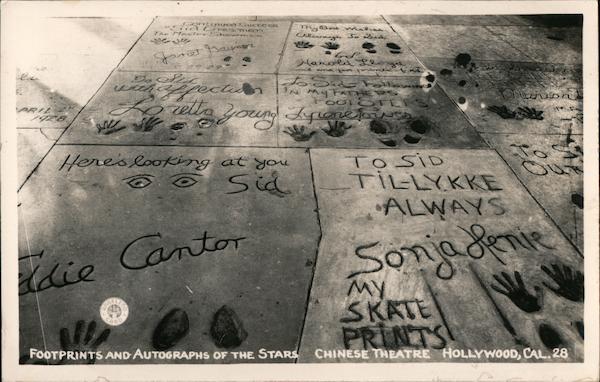 Continued Success
to Sid Grauman
The Master Showman
Janet Gaynor
My Best Wishes
Always To Sid
Harold Lloyd
To Sid
with affection
Loretta Young
To Sid
IN MY FATHER'S
FOOTSTEPS
Tyrone Power
APRIL
1928
Marion
To Sid
Here's looking at you
Sid
Eddie Cantor
TO SID
TIL-LYKKE
ALWAYS
Sonja Henie
MY
SKATE
PRINTS
FOOTPRINTS AND AUTOGRAPHS OF THE STARS CHINESE THEATRE HOLLYWOOD, CAL. 28